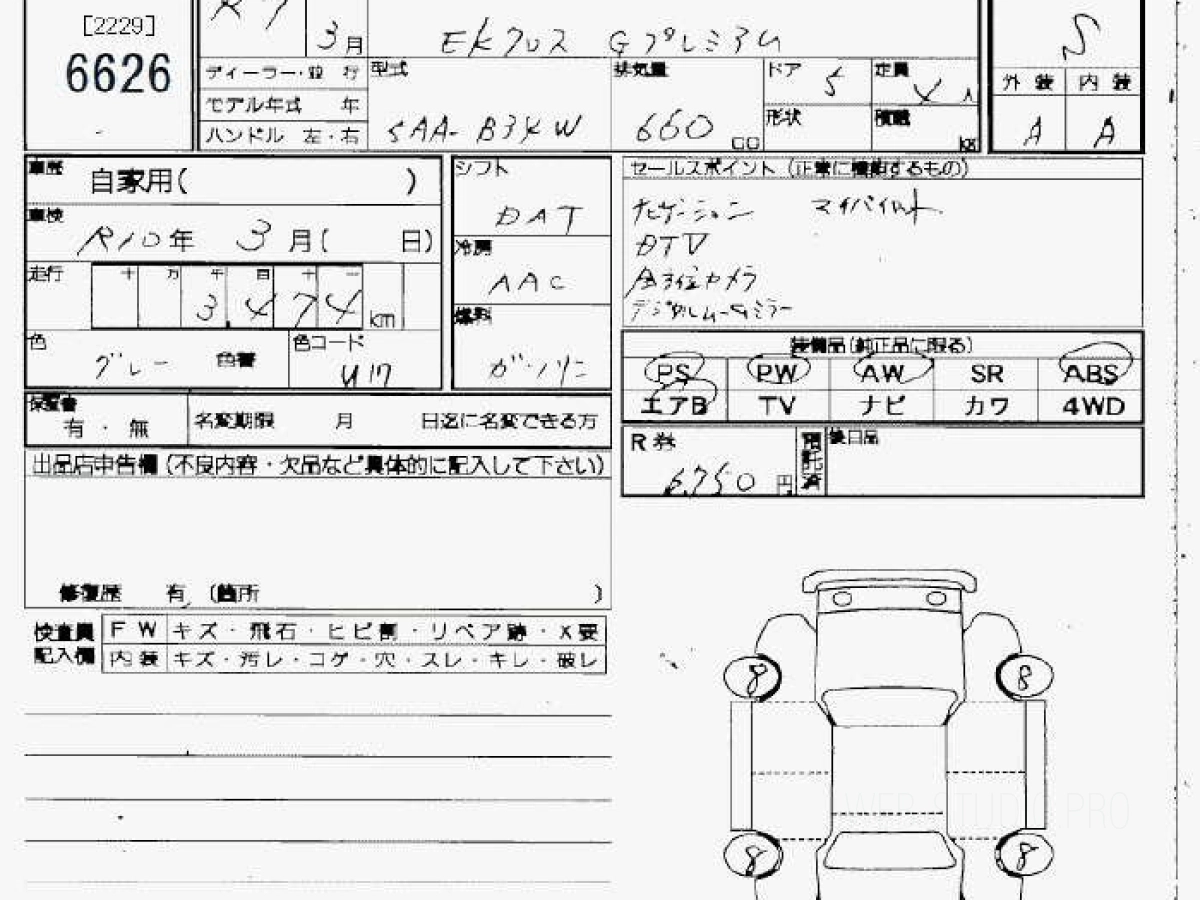 [2229]
6626
R7
3月
EKクロス Gプレミアム
S
ディーラー・並 行
モデル年式 年
ハンドル 左・右
型式
5AA-B34W
排気量
660
CC
ドア 5
定員 4人
形状
積載
kg
外装 内装
A A
車歴 自家用( )
車検 R10年 3月( 日)
走行 十 万 千 百 十 一
3474 km
色 グレー 色替
色コード U17
シフト
DAT
冷房
AAC
燃料
ガソリン
セールスポイント (正常に機能するもの)
ナビゲーション マイパイロット
DTV
全方位カメラ
デジタルルームミラー
装備品(純正品に限る)
PS PW AW SR ABS
エアB TV ナビ カワ 4WD
保証書
有・無
名変期限 月 日迄に名変できる方
R券
6,750 円
預託済
後日品
出品店申告欄(不良内容・欠品など具体的に記入して下さい)
修復歴 有 (箇所 )
検査員
記入欄
FW キズ・飛石・ヒビ割・リペア跡・X要
内装 キズ・汚レ・コゲ・穴・スレ・キレ・破レ
8 8
8 8
WEB STUDIO PRO